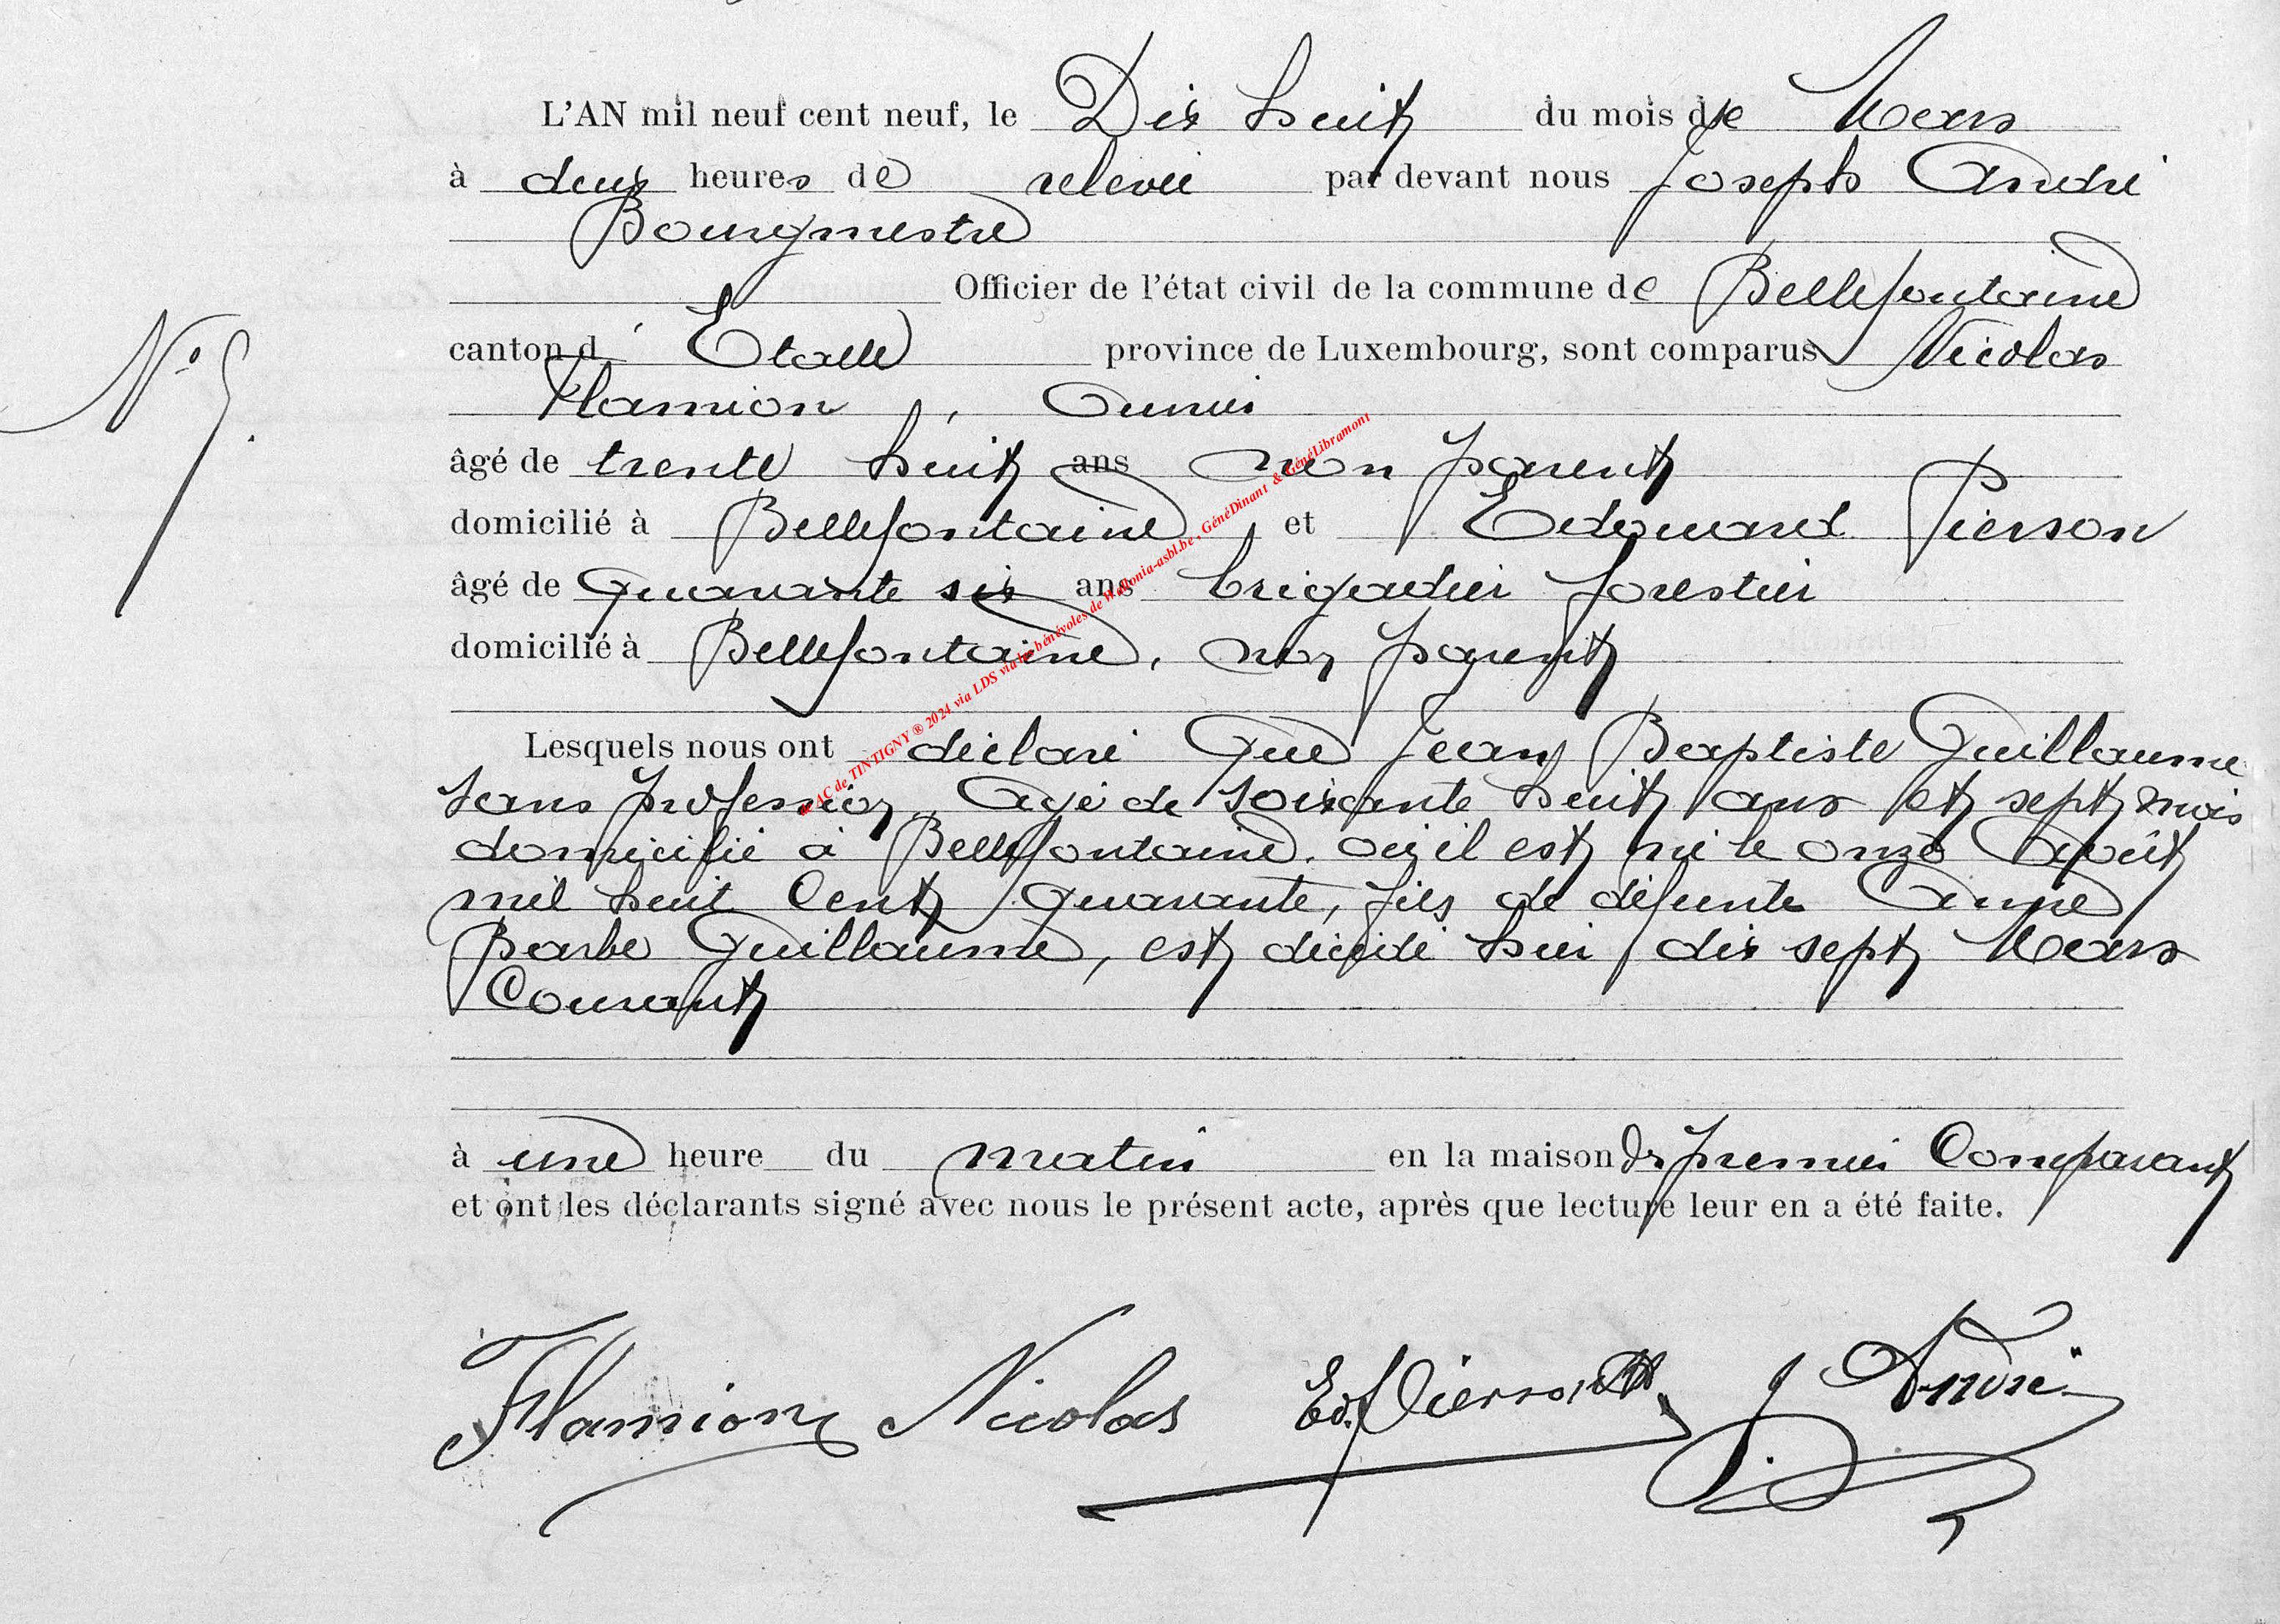 L'AN mil neuf cent neuf, le Dix huit du mois de Mars
à deux heures de relevée par devant nous Joseph André
Bourgmestre
Officier de l'état civil de la commune de Bellefontaine
canton d' Etalle province de Luxembourg, sont comparus Nicolas
Flamion, 
N° 5.
âgé de trente huit ans non parent
domicilié à Bellefontaine, et Edouard Pierson
âgé de quarante six ans brigadier forestier
domicilié à Bellefontaine, non parent
Lesquels nous ont déclaré que Jean Baptiste Guillaume
sans profession, agé de soixante huit ans et sept mois
domicilié à Bellefontaine, où il est né le onze Août
mil huit cent quarante, fils de défunte Anne
Barbe Guillaume, est décédé hier dix sept Mars
Courant
à une heure du matin en la maison du premier Comparant
et ont les déclarants signé avec nous le présent acte, après que lecture leur en a été faite.
Flamion Nicolas Ed. Pierson J André
AC de TINTIGNY ® 2024 via LDS via les bénévoles de Wallonia-asbl.be, GénéDinant & GénéLibramont